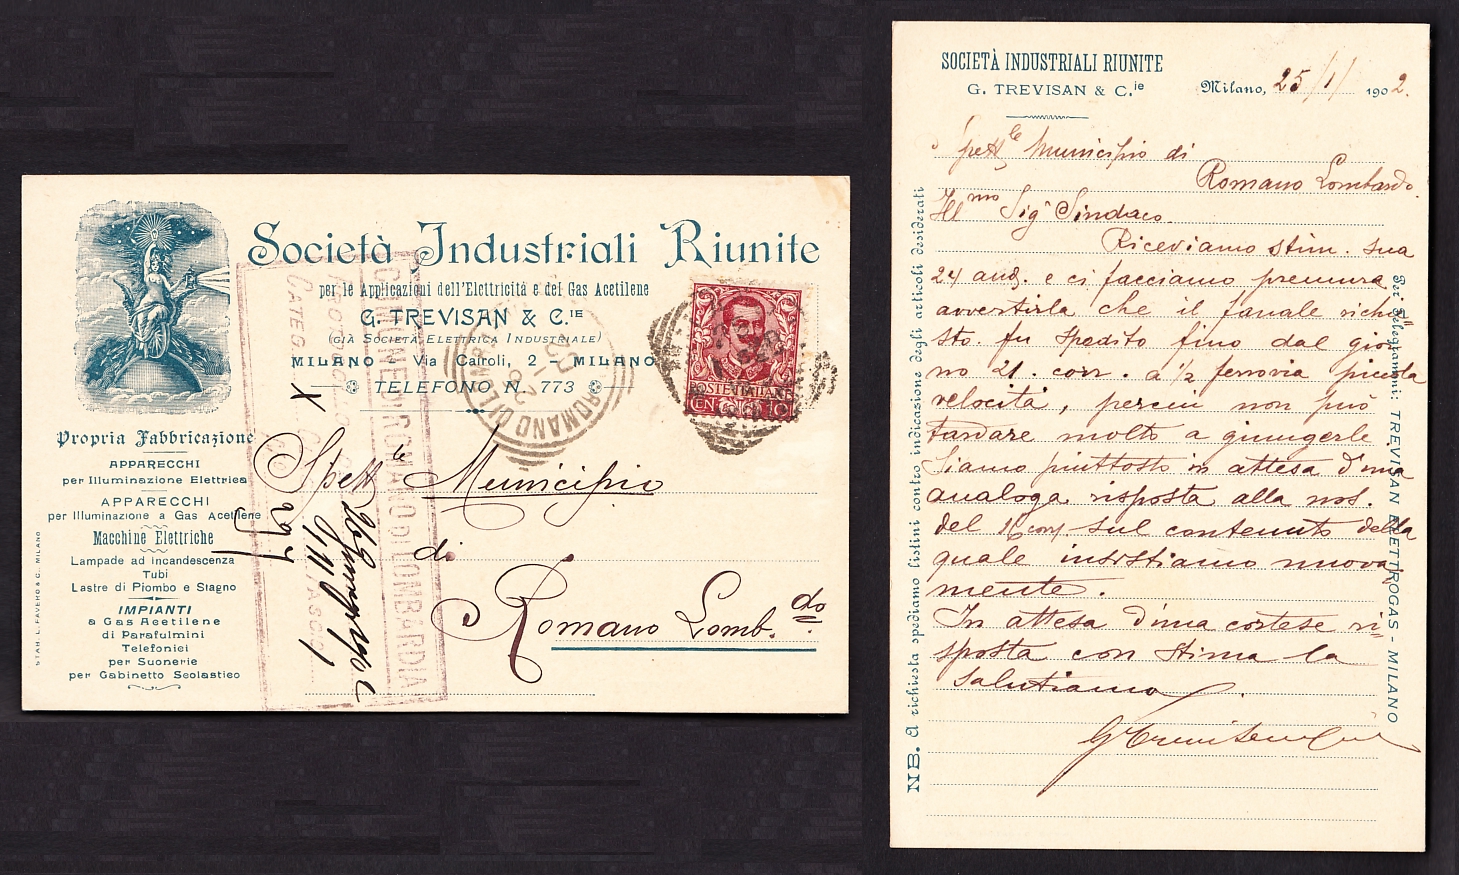 Società Industriali Riunite
per le Applicazioni dell'Elettricità e del Gas Acetilene
G. TREVISAN & C.IE
(GIÀ SOCIETÀ ELETTRICA INDUSTRIALE)
MILANO - Via Cairoli, 2 - MILANO
TELEFONO N. 773
POSTE ITALIANE
CENT. 10
ROMANO DI LOMBARDIA
COMUNE DI ROMANO DI LOMBARDIA
CATEG.
Propria Fabbricazione
APPARECCHI
per Illuminazione Elettrica
APPARECCHI
per Illuminazione a Gas Acetilene
Macchine Elettriche
Lampade ad incandescenza
Tubi
Lastre di Piombo e Stagno
IMPIANTI
a Gas Acetilene
di Parafulmini
Telefonici
per Suonerie
per Gabinetto Scolastico
STAB. L. FAVERO & C. MILANO
Spett.le Municipio
di
Romano Lomb.do
SOCIETÀ INDUSTRIALI RIUNITE
G. TREVISAN & C.ie
Milano, 25/1/ 1902.
Spett.le Municipio di
Romano Lombardo
Ill.mo Sigr Sindaco
Riceviamo stim. sua
24 and. e ci facciamo premura
avvertirla che il fanale richie
sto fu spedito fino dal gior
no 21. corr. a 1/2 ferrovia piccola
velocità, perciò non può
tardare molto a giungerle
Siamo piuttosto in attesa d'una
analoga risposta alla nos.
del 16 corr. sul contenuto della
quale insistiamo nuova
mente.
In attesa d'una cortese ri=
sposta con stima la
Salutiamo.
NB. A richiesta spediamo listini contro indicazione degli articoli desiderati
Per Telegrammi: TREVISAN ELETTROGAS - MILANO